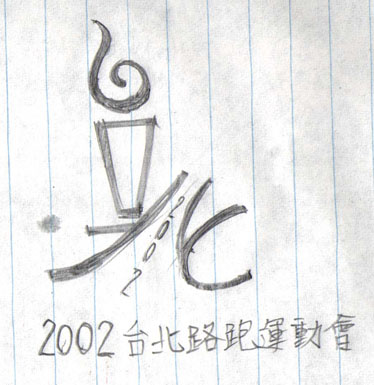 2002
2002台北路跑運動會